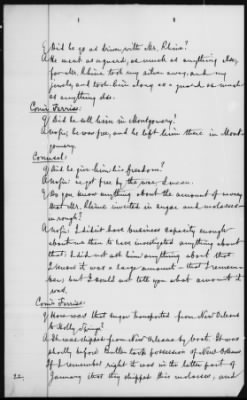 Q Did he go as driver, with Mr. Rhine?
A He went as a guard, as much as anything else,
for Mr. Rhine took my silver away, and my
jewels, and took him along as a guard as much
as anything else.
Com'r Ferriss:
Q Did he sell him in Montgomery?
A No sir, he was free, and he left him there in Mont-
gomery.
Counsel:
Q Did he give him his freedom?
A No sir he got free by the war, I mean.
Q Do you know anything about the amount of money
that Mr. Rhine invested in sugar and molasses
A No sir; I did not have business capacity enough
about me then to have investigated anything about
that; I did not ask him anything about that
I know it was a large amount - that I remem-
ber; but I could not tell you what amount it
was.
Com'r Ferriss:
Q How was that sugar transported from New Orleans
to Holly Springs?
A It was shipped from New Orleans by boat. It was
shortly before Butler took possession of New Orleans
If I remember right it was in the latter part of
January that they shipped this molasses, and
22